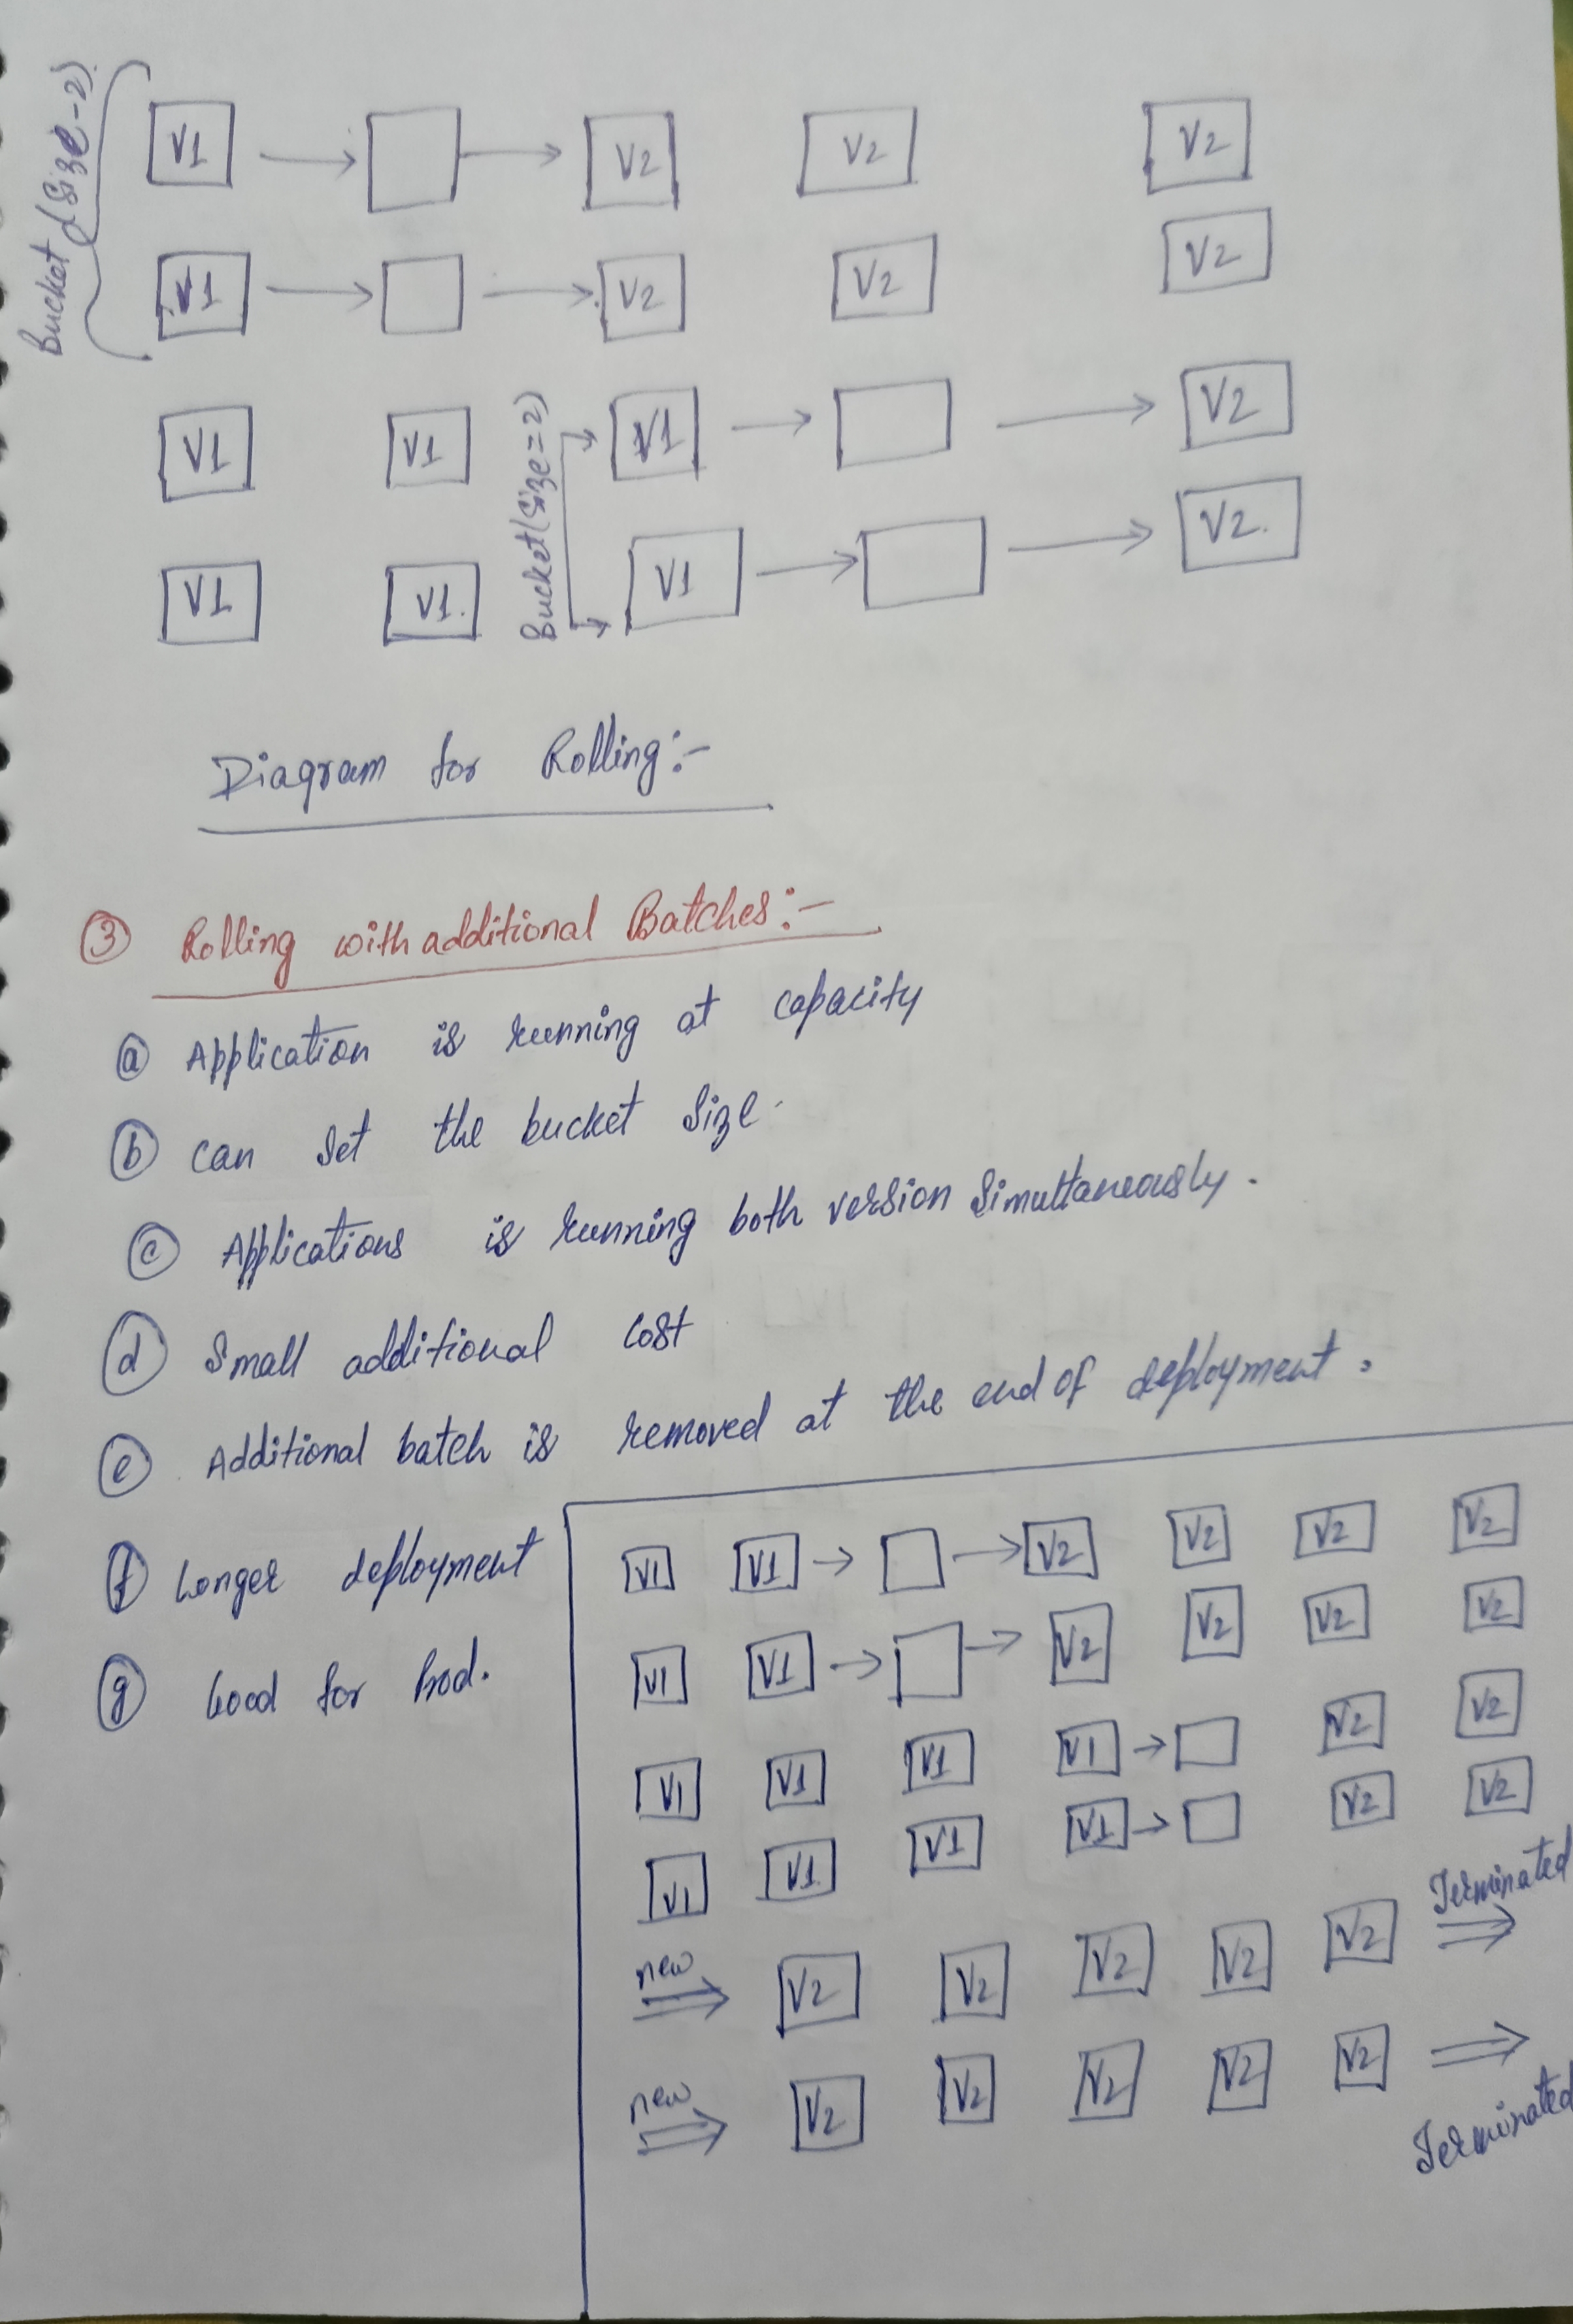 Bucket (Size-2)
V1 V2 V2 V2
V1 V2 V2 V2
Bucket (Size=2)
V1 V1 V1 V2
V1 V1. V1 V2.
Diagram for Rolling:-
③ Rolling with additional Batches:-
ⓐ Application is running at capacity
ⓑ Can Set the bucket Size.
ⓒ Applications is running both version Simultaneously.
ⓓ Small additional Cost
ⓔ Additional batch is removed at the end of deployment.
ⓕ Longer deployment
ⓖ Good for Prod.
V1 V1 V2 V2 V2 V2
V1 V1 V2 V2 V2 V2
V1 V1 V1 V1 V2 V2
V1 V1 V1 V1 V2 V2
new V2 V2 V2 V2 V2 Terminated
new V2 V2 V2 V2 V2 Terminated